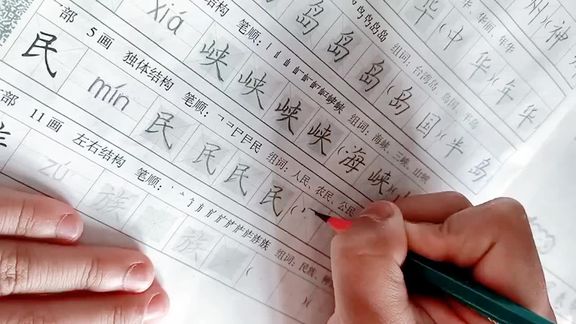 州(神
华丽、年华
华 华(中 华)(年 华
组词:台湾岛、岛国、半岛
岛 岛 岛 岛(岛 国)(半 岛
笔顺: 组词:海峡、三峡、山峡
xiá 峡 峡 峡 峡(海 峡)(
部 5画 独体结构 笔顺: 组词:人民、农民、公民
民 mín 民 民 民 民(
部 11画 左右结构 笔顺: 组词:
zú 族 族 ( )(